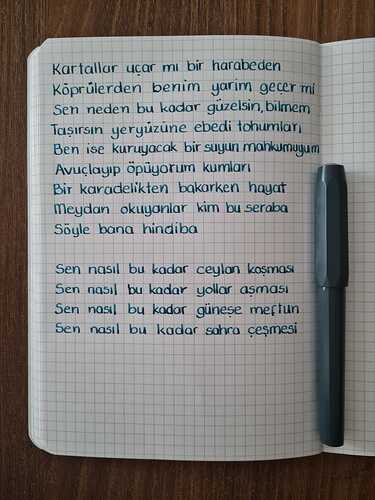 Kartallar uçar mı bir harabeden
Köprülerden benim yarim geçer mi
Sen neden bu kadar güzelsin, bilmem
Taşırsın yeryüzüne ebedi tohumları
Ben ise kuruyacak bir suyun mahkumuyum
Avuçlayıp öpüyorum kumları
Bir karadelikten bakarken hayat
Meydan okuyanlar kim bu seraba
Söyle bana hindiba
Sen nasıl bu kadar ceylan koşması
Sen nasıl bu kadar yollar aşması
Sen nasıl bu kadar güneşe meftun
Sen nasıl bu kadar sahra çeşmesi